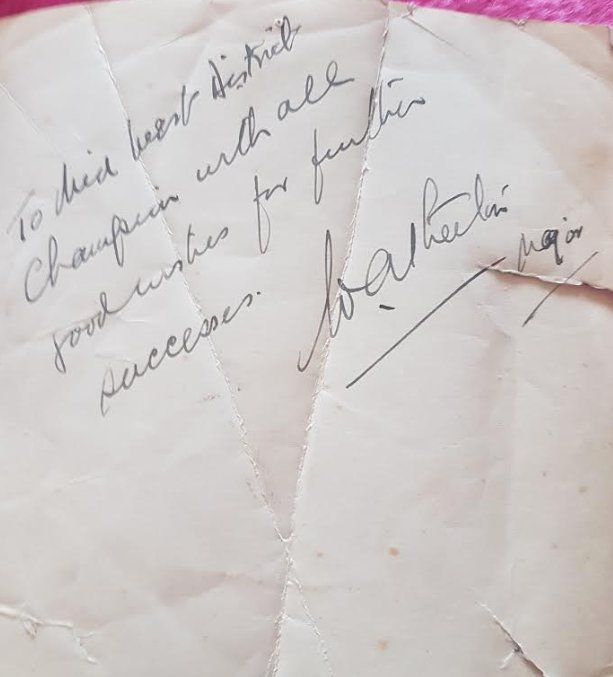 To Mid West District
Champion with all
good wishes for further
successes.
Major